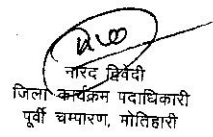 नारद द्विवेदी
जिला कार्यक्रम पदाधिकारी
पूर्वी चम्पारण, मोतिहारी